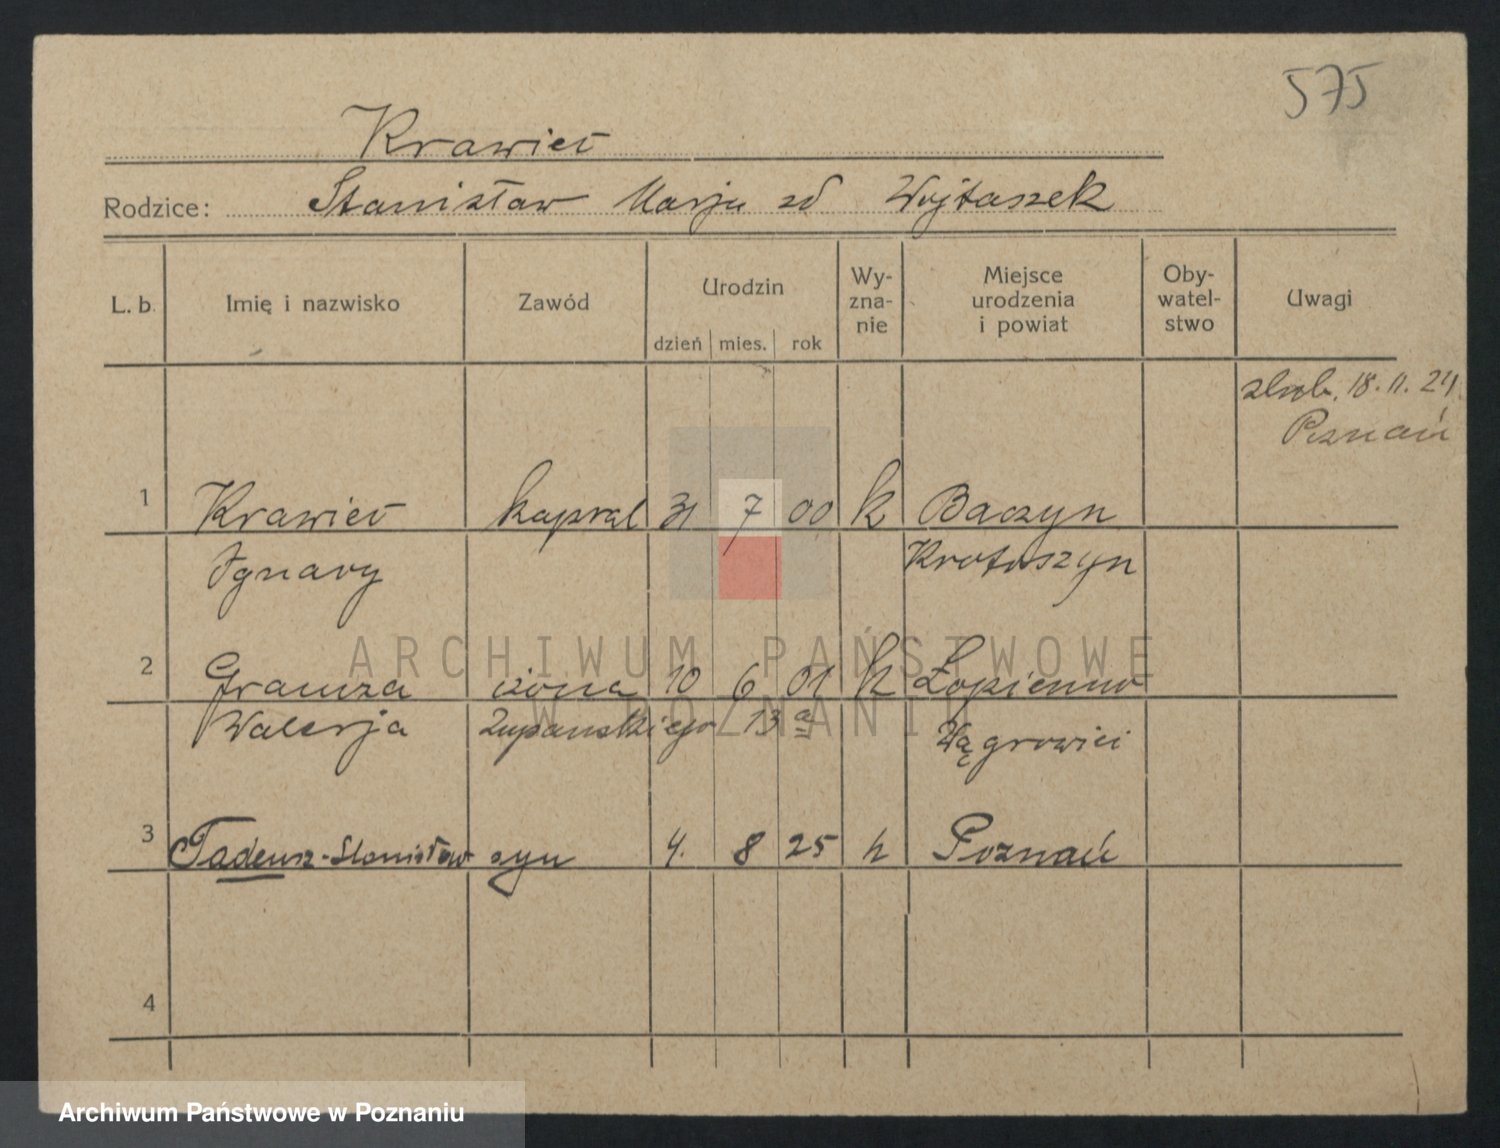 575
Krawiec
Rodzice: Stanisław Marja zd Wojtaszek
L. b. Imię i nazwisko Zawód Urodzin Wy-zna-nie Miejsce urodzenia i powiat Oby-watel-stwo Uwagi
dzień mies. rok
18. 11. 24
Poznań
1 Krawiec kapral 31 7 00 k Baczyn
Ignacy Krotoszyn
ARCHIWUM PAŃSTWOWE
2 Gramza żona 10 6 01 k Łopienno
W POZNANIU
Walerja Zupanskiego 13 a Wągrowiec
3 Tadeusz-Stanisław syn 4. 8 25 k Poznań
4
Archiwum Państwowe w Poznaniu